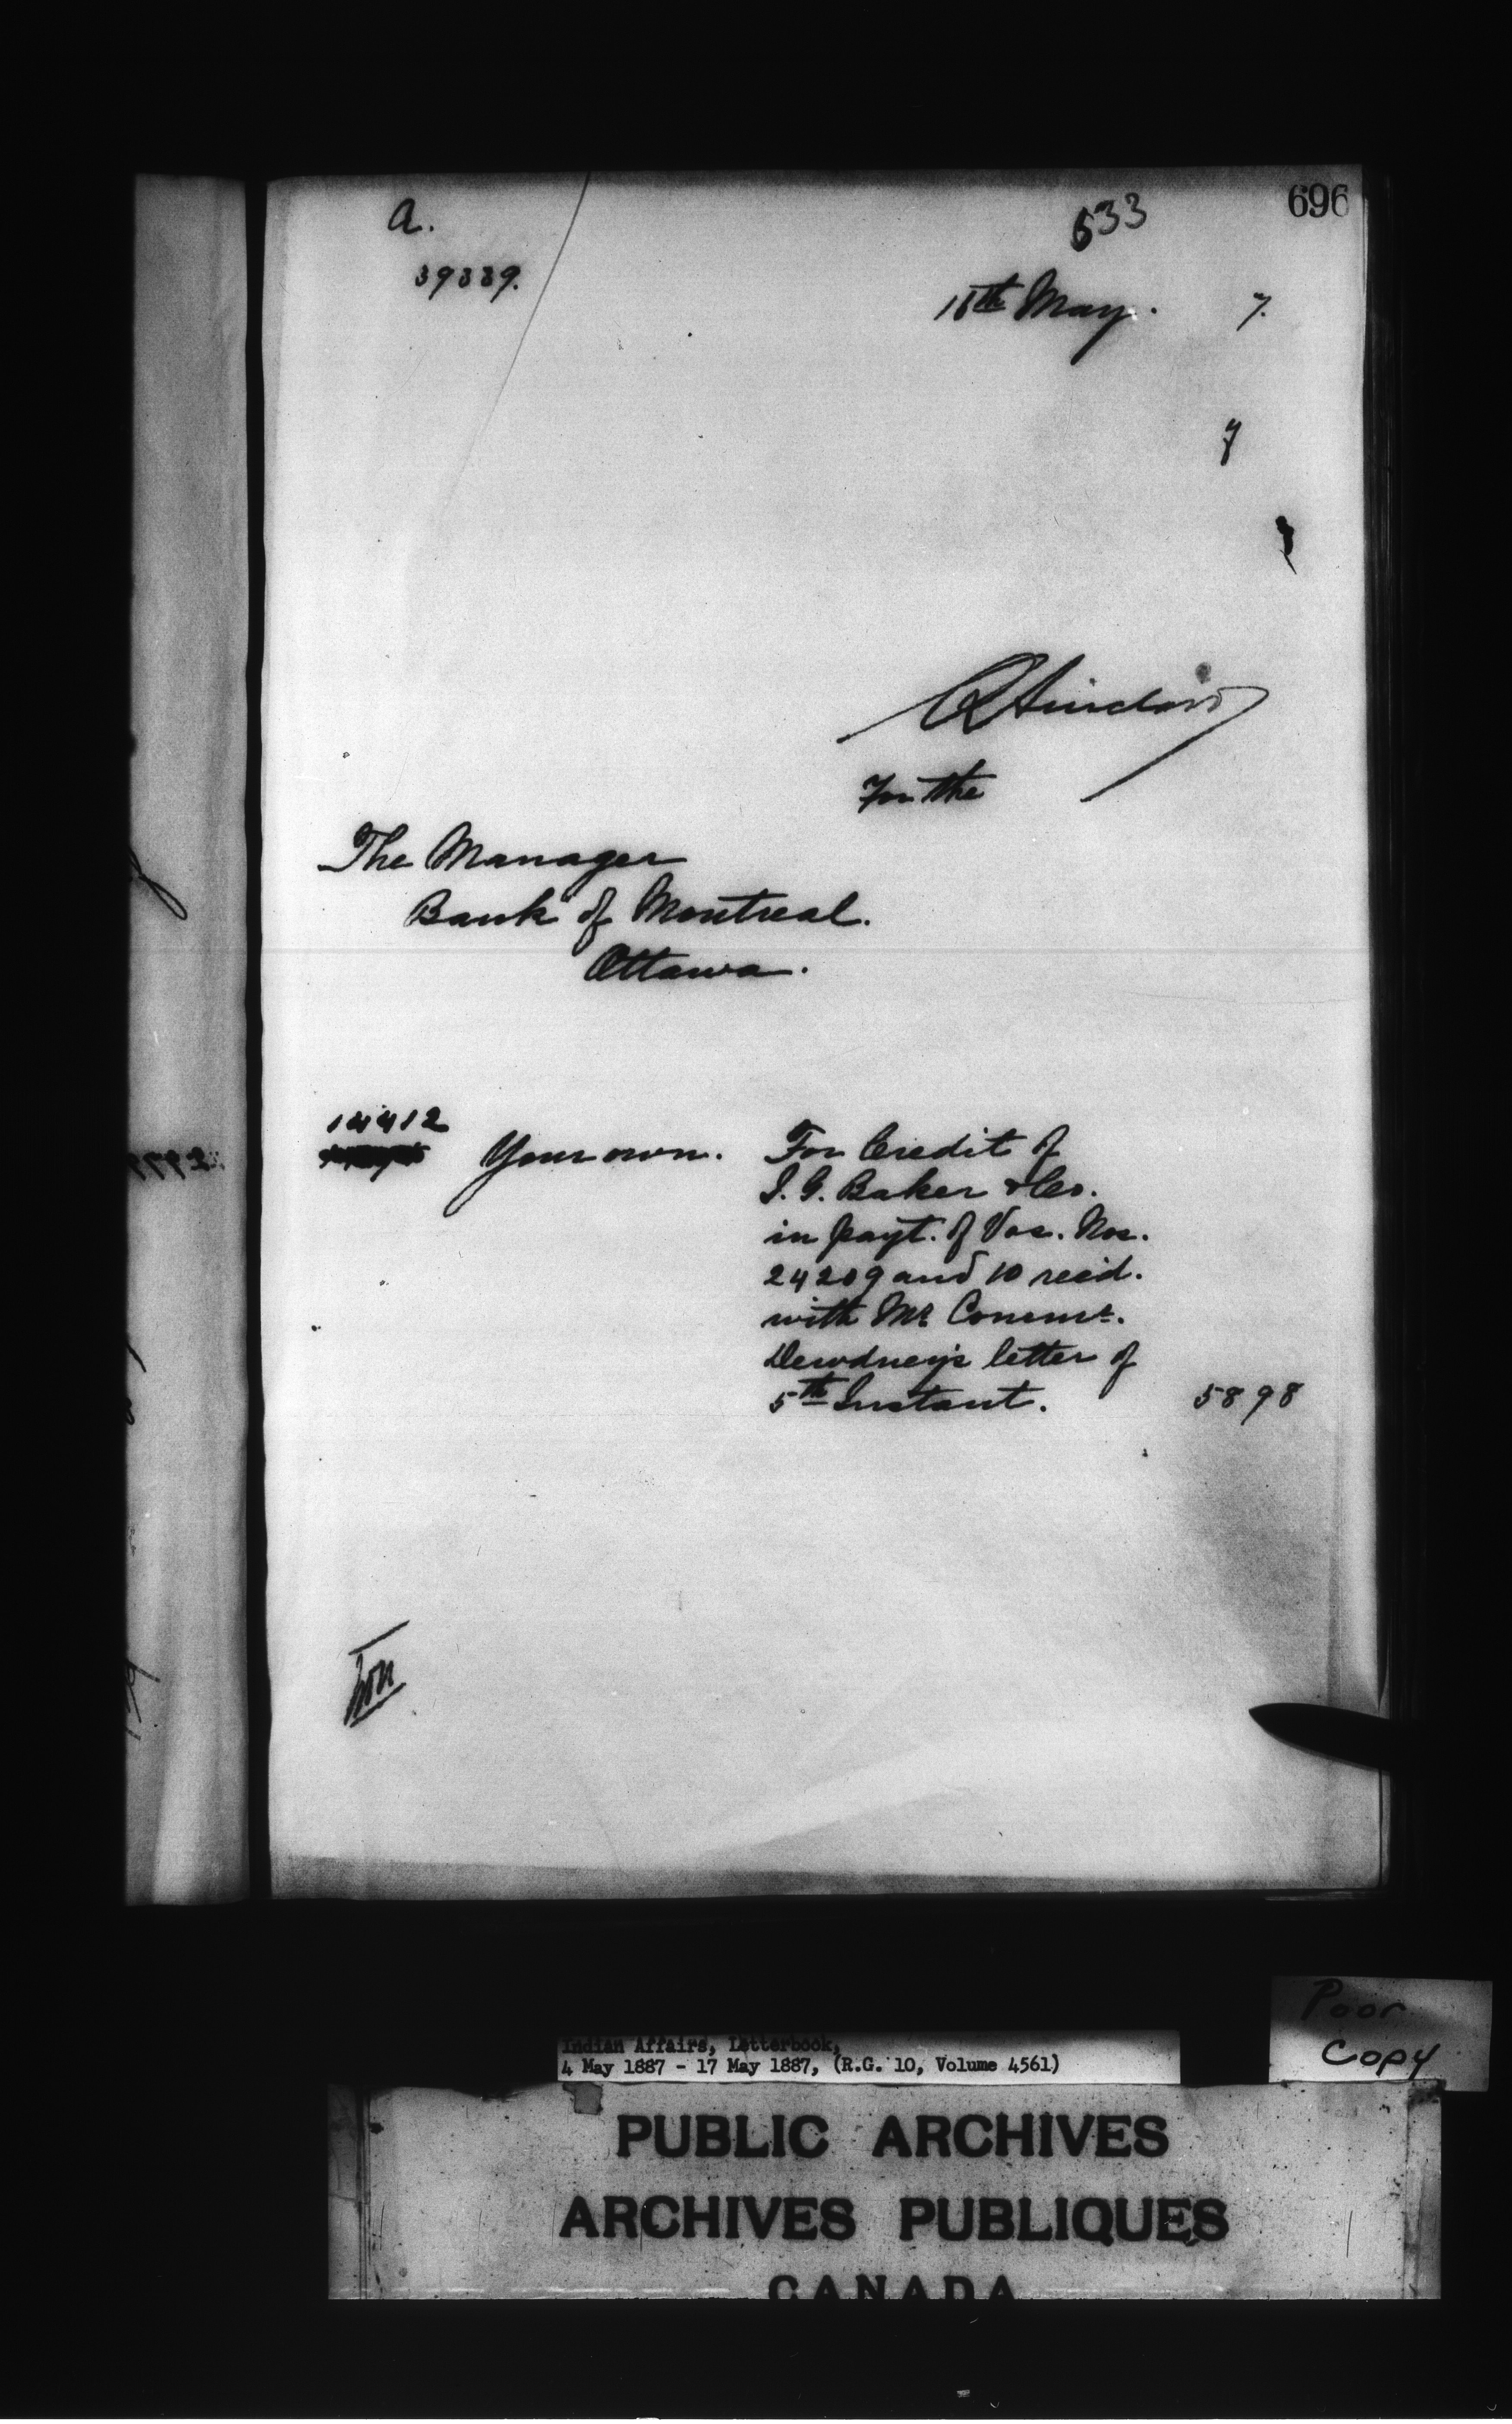 696
a.
533
39339.
16th May. 7.
7
R Sinclair
For the
The Manager
Bank of Montreal.
Ottawa.
14412
Your own. For Credit of
I. G. Baker & Co.
in payt. of Vos. Nos.
24209 and 10 recd.
with Mr Commr.
Dewdney's letter of
5th Instant. 58 98
Poor
Copy
Indian Affairs, Letterbook,
4 May 1887 - 17 May 1887, (R.G. 10, Volume 4561)
PUBLIC ARCHIVES
ARCHIVES PUBLIQUES
CANADA